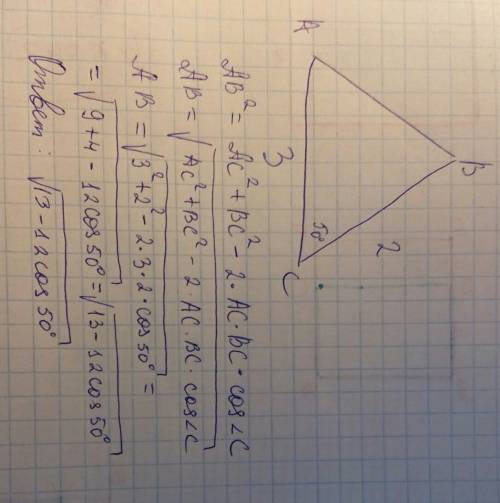 B
2
A
3
50°
C
AB² = AC² + BC² - 2·AC·BC·cos∠C
AB = √AC² + BC² - 2·AC·BC·cos∠C
AB = √3² + 2² - 2·3·2·cos50° =
= √9+4 - 12cos50° = √13 - 12cos50°
Ответ: √13 - 12cos50°